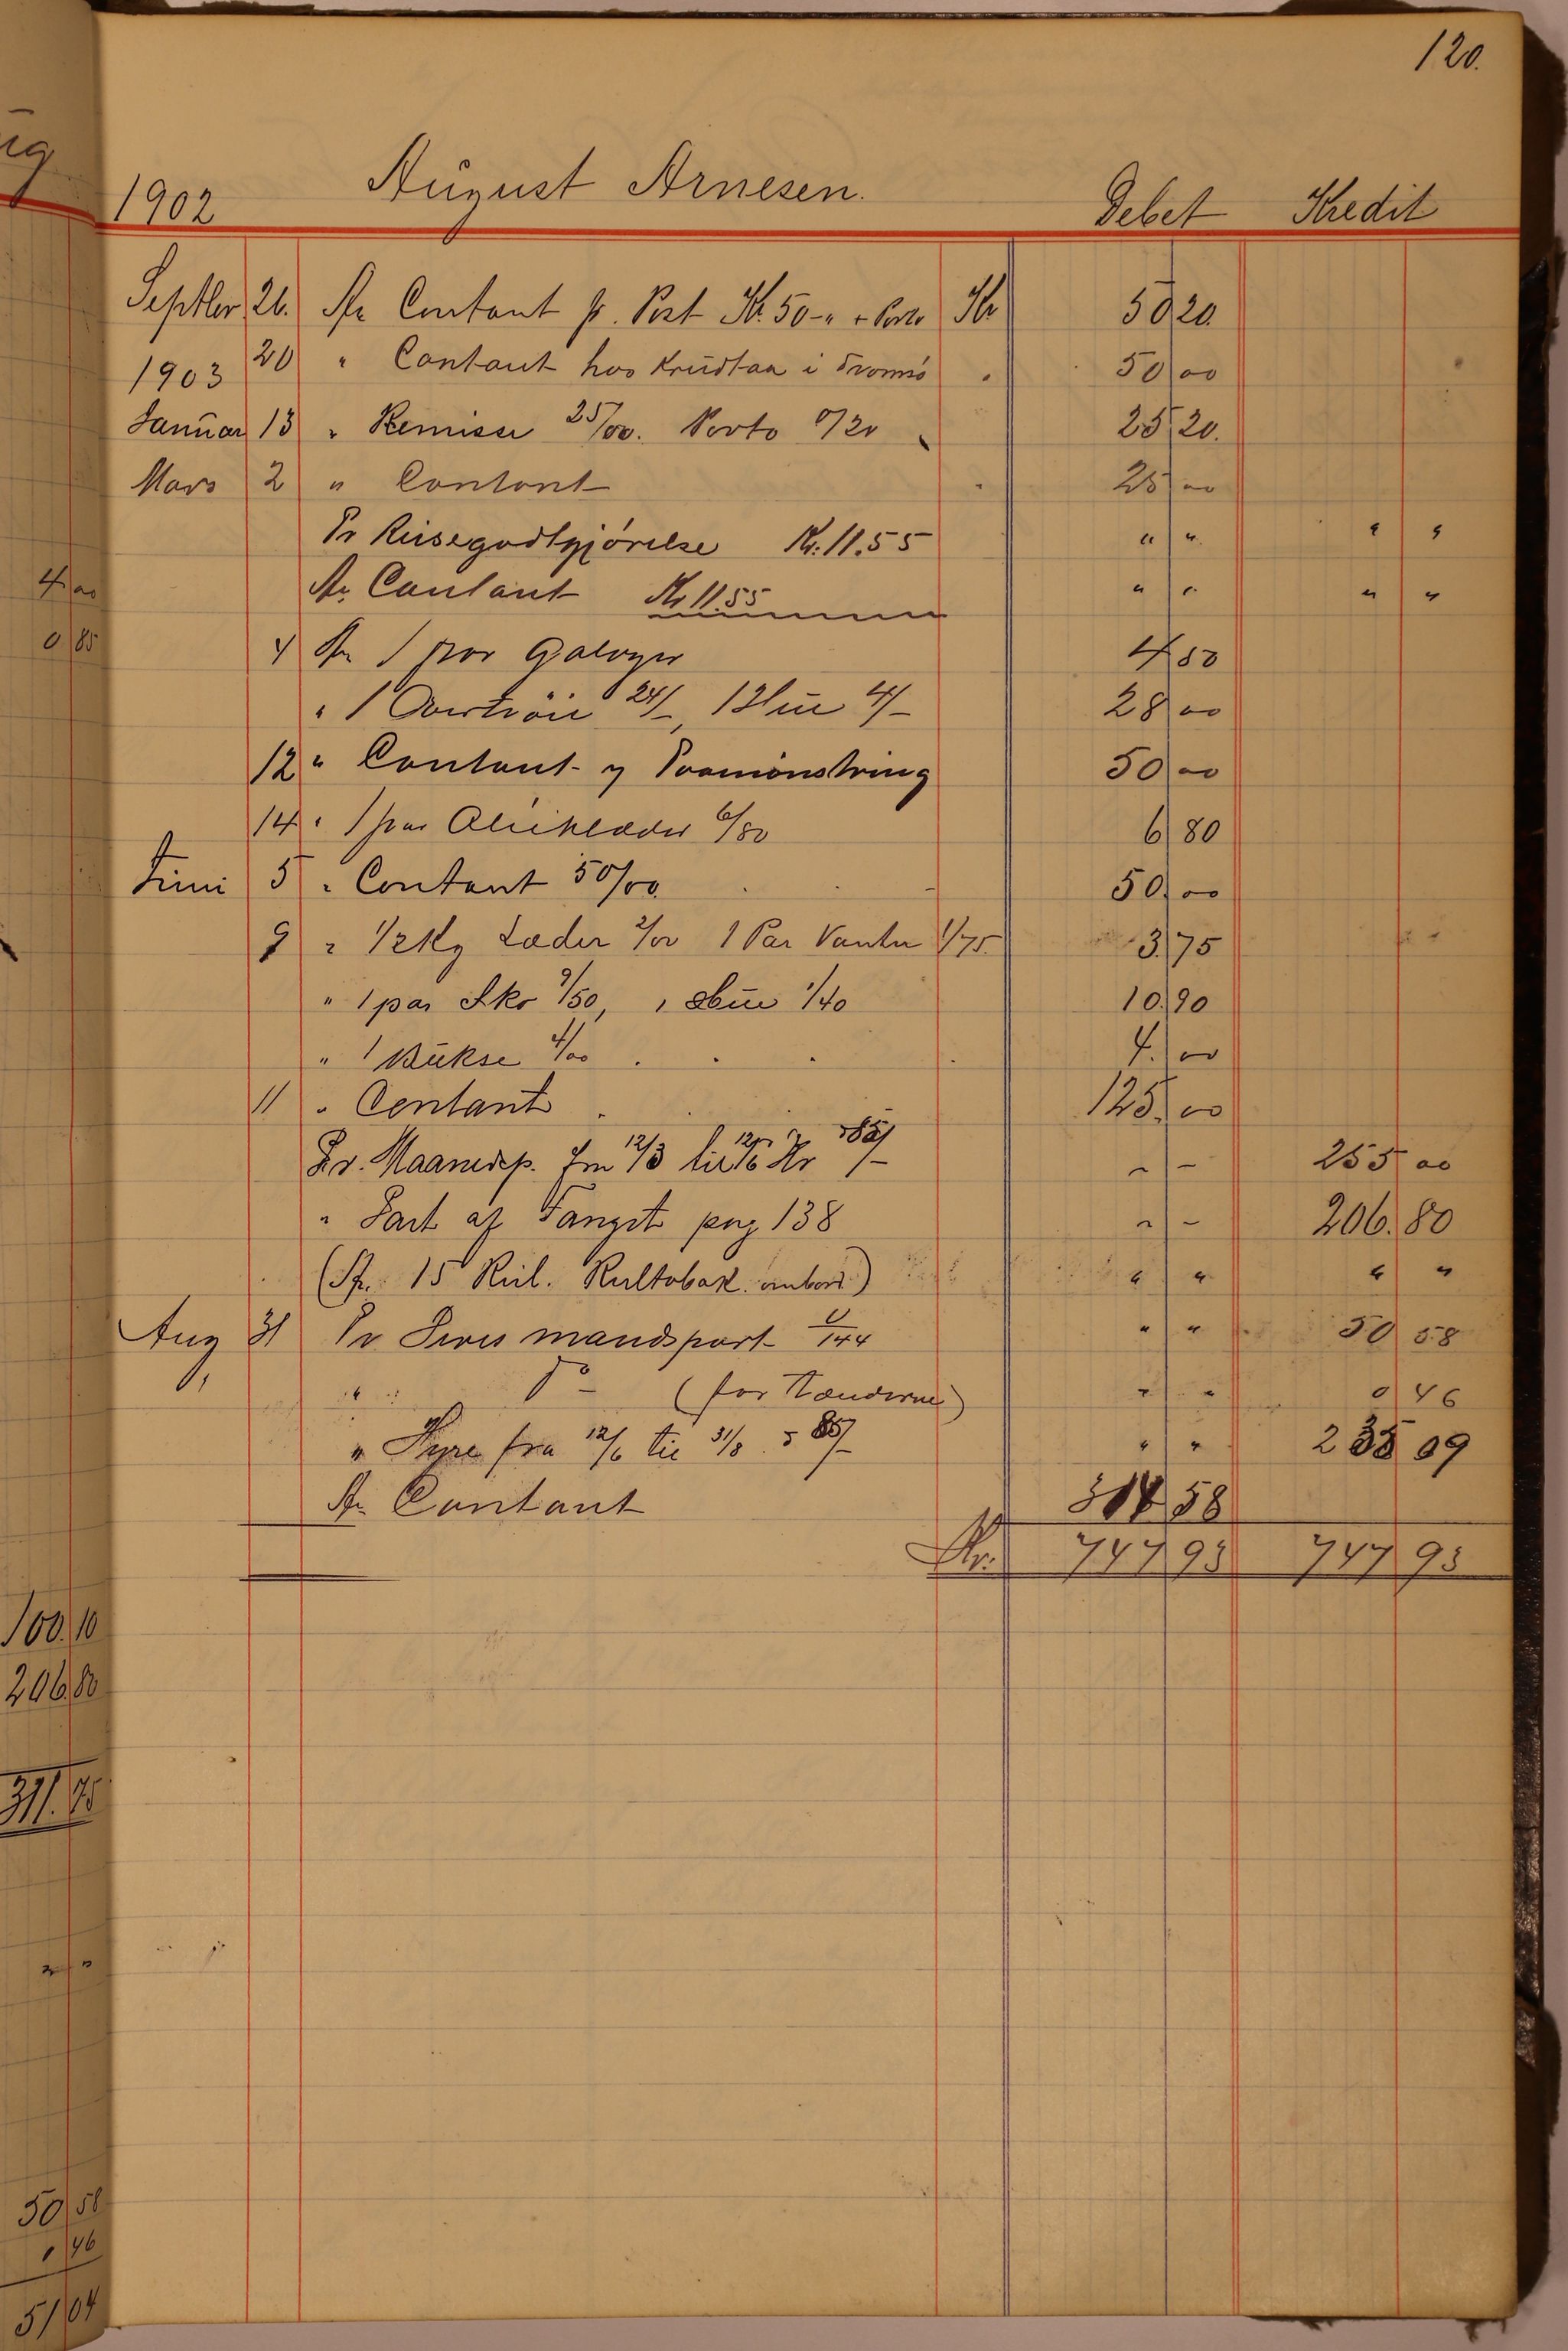 120.
August Arnesen.
1902 Debet Kredit
Septbr 26. An Contant pr. Post Kr. 50-" + Porto Kr 50 20.
20 " Contant hos Krüdtaa i Tromsö " 50 00
1903
Januar 13 " Remisse 25/00. Porto 0/20 " 25 20.
Mars 2 " Contant " 25 00
Pr Reisegodtgjörelse Kr. 11.55 " " " "
An Contant Kr 11.55 " " " "
4 An 1 par Galoger 4 80
" 1 Overtröie 24/-, 1 Hue 4/- 28 00
12 " Contant v Paamönstring 50 00
14 " 1 par Olieklæder 6/80 6 80
Juni 5 " Contant 50/00. 50. 00
9 " 1/2 Kg Læder 2/00 1 Par Vanter 1/75. 3. 75
" 1 par Sko 9/50, 1 Hue 1/40 10. 90
" 1 Bukse 4/00 4. 00
11 " Contant 125. 00
Pr. Maanedsp. fra 12/3 til 12/6 Kr 85/- " - 255 00
" Part af Fangst pag 138 " - 206. 80
(An 15 Rul. Rultobak ombord) " " " "
Aug 31 Pr Livis mandspart 144 " " 50 58
" Do - (for Tænderne) " " 0 46
" Hyre fra 12/6 til 31/8 85/- " " 235 09
An Contant 314 58
Kr. 747 93 747 93
4. 00
0 85
100. 10
206 80
311. 75
" "
50 58
" 46
51 04